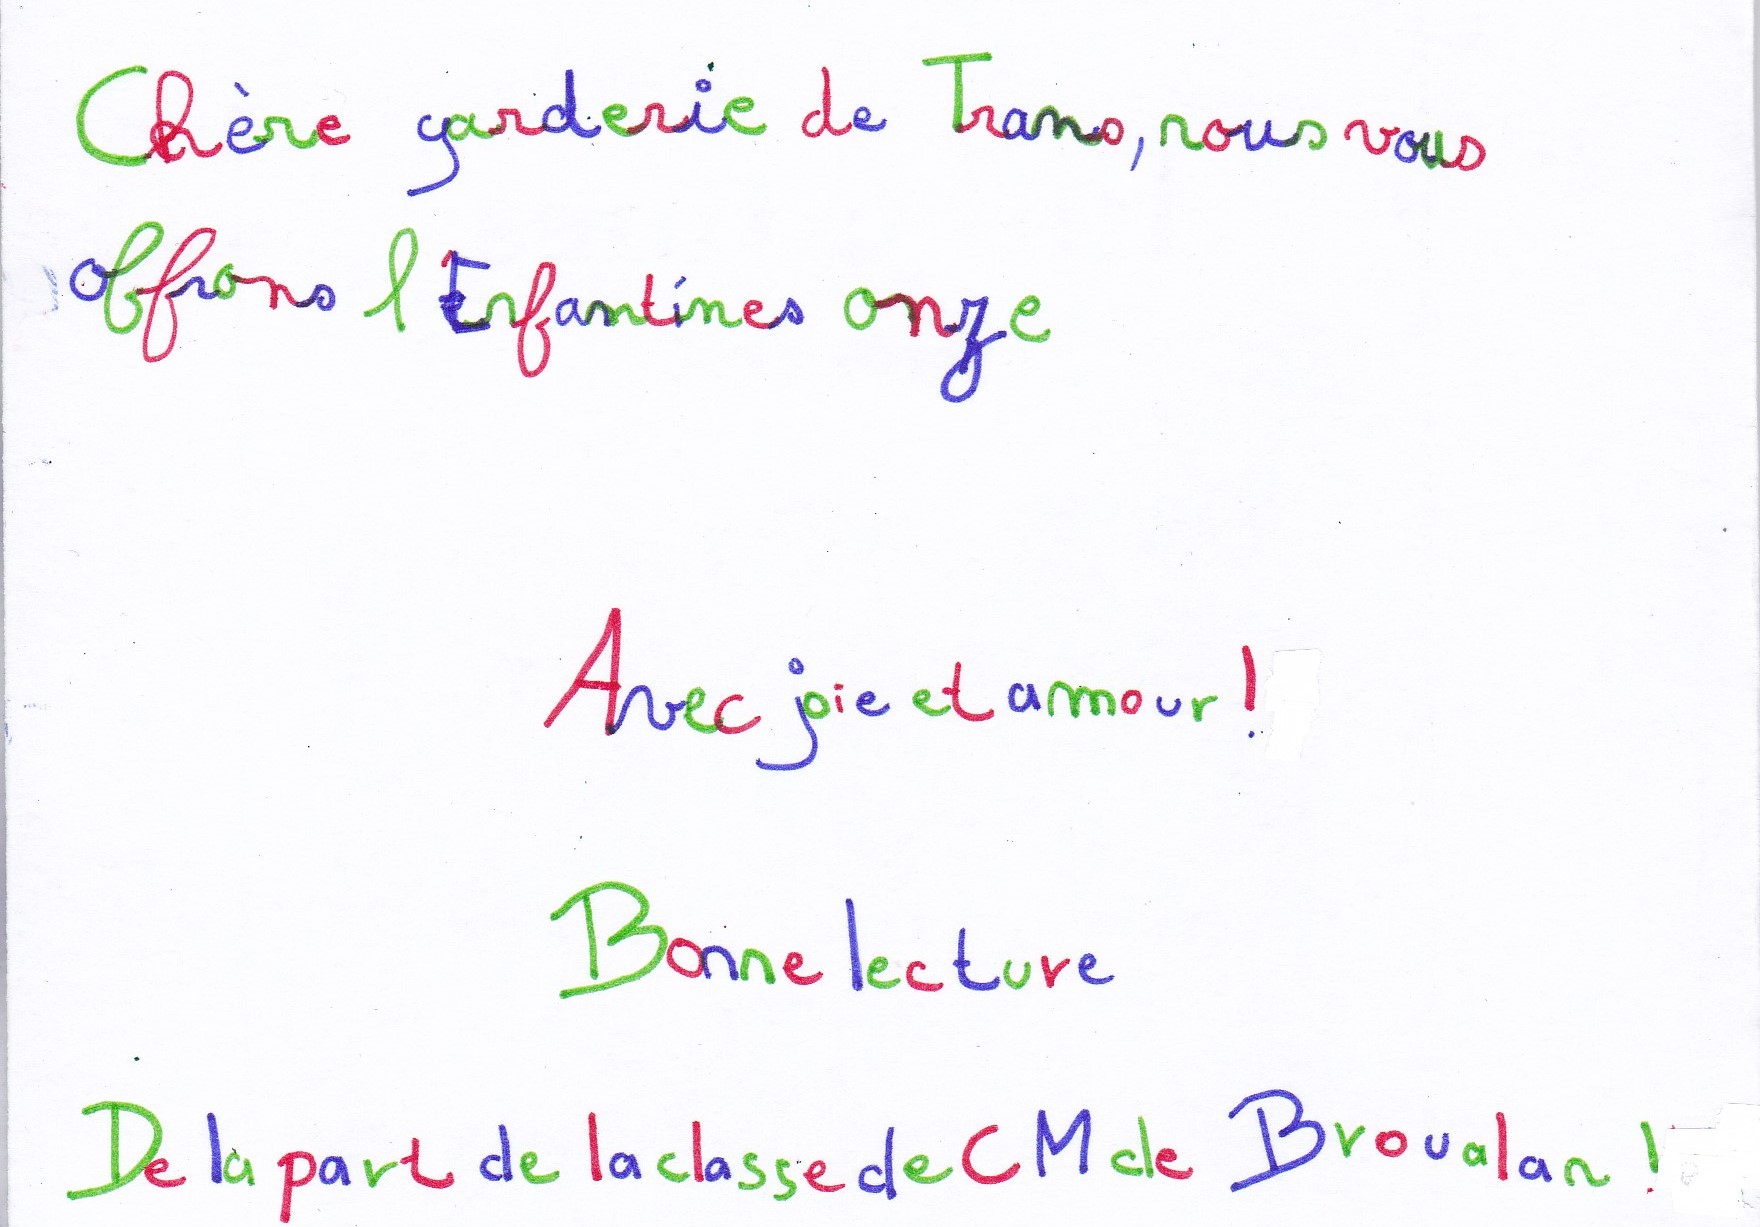 Chère garderie de Trans, nous vous
offrons l Enfantines onze
Avec joie et amour !
Bonne lecture
De la part de la classe de CM de Broualan !